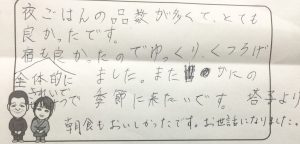 夜ごはんの品数が多くて、とても
良かったです。
宿も良かったのでゆっくりくつろげ
ました。また かにの
季節に来たいです。 塔子より
全体的に
きれいで
朝食もおいしかったです。お世話になりました。